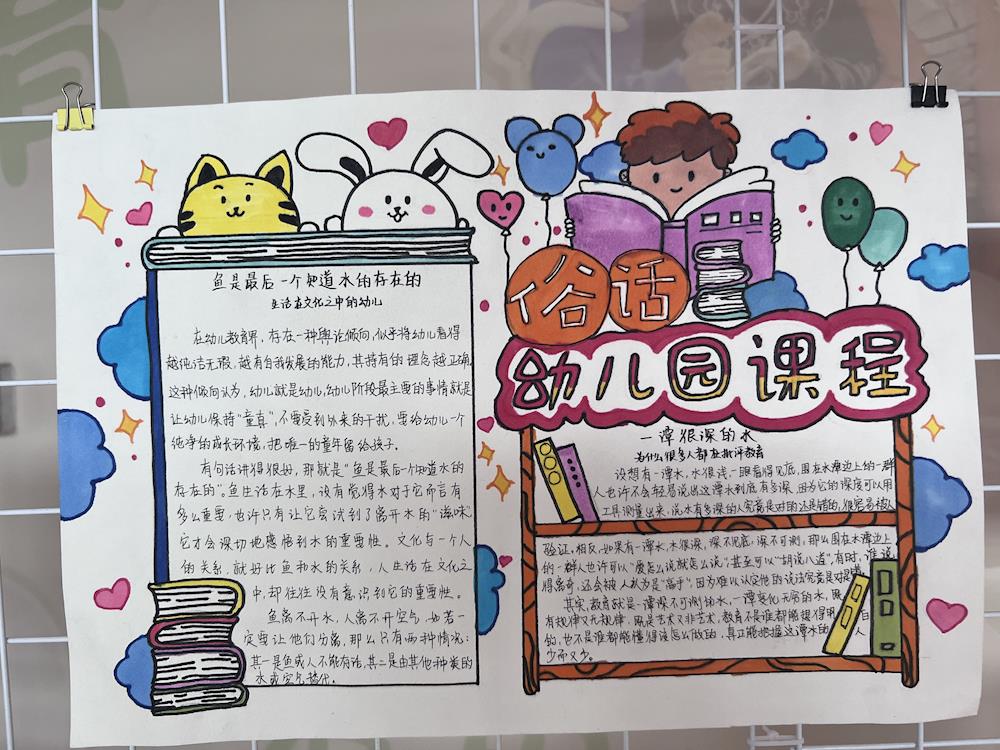 鱼是最后一个知道水的存在的
生活在文化之中的幼儿
在幼儿教育界,存在一种舆论倾向,似乎将幼儿看得
越纯洁无瑕,越有自我发展的能力,其持有的理念越正确,
这种倾向认为,幼儿就是幼儿,幼儿阶段最主要的事情就是
让幼儿保持“童真”,不要受到外来的干扰,要给幼儿一个
纯净的成长环境,把唯一的童年留给孩子。
有句话讲得很好,那就是“鱼是最后一个知道水的
存在的”。鱼生活在水里,没有觉得水对于它而言有
多么重要,也许只有让它尝试到了离开水的“滋味”
它才会深切地感悟到水的重要性。文化与一个人
的关系,就好比鱼和水的关系,人生活在文化之
中,却往往没有意识到它的重要性。
鱼离不开水,人离不开空气,如若一
定要让他们分离,那么只有两种情况:
其一是鱼或人不能存活,其二是由其他种类的
水或空气替代。
俗话
幼儿园课程
一潭很深的水
为什么很多人都在批评教育
设想有一潭水,水很浅,一眼看得见底,围在水潭边上的一群
人也许不会轻易说出这潭水到底有多深,因为它的深度可以用
工具测量出来,说水有多深的人究竟是对的还是错的,很容易被人
验证,相反,如果有一潭水,水很深,深不见底,深不可测,那么围在水潭边上
的一群人也许可以“爱怎么说就怎么说”,甚至可以“胡说八道”,有时,谁说
得离奇,还会被人认为是“高手”,因为难以认定他的说法究竟是对是错
其实,教育就是一潭深不可测的水,一潭变化无穷的水,既
有规律又无规律,既是艺术又非艺术,教育不是谁都能想得明白
的,也不是谁都能懂得该怎么做的,真正能把握这潭水的人
少而又少。